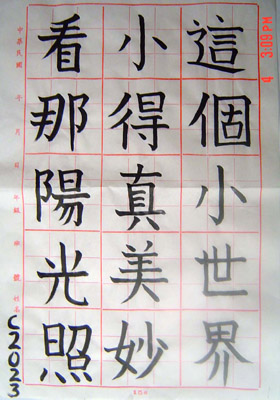 這個小世界
小得真美妙
看那陽光照
中華民國 年 月 日 年級 班 號 姓名
C2023
3:09PM